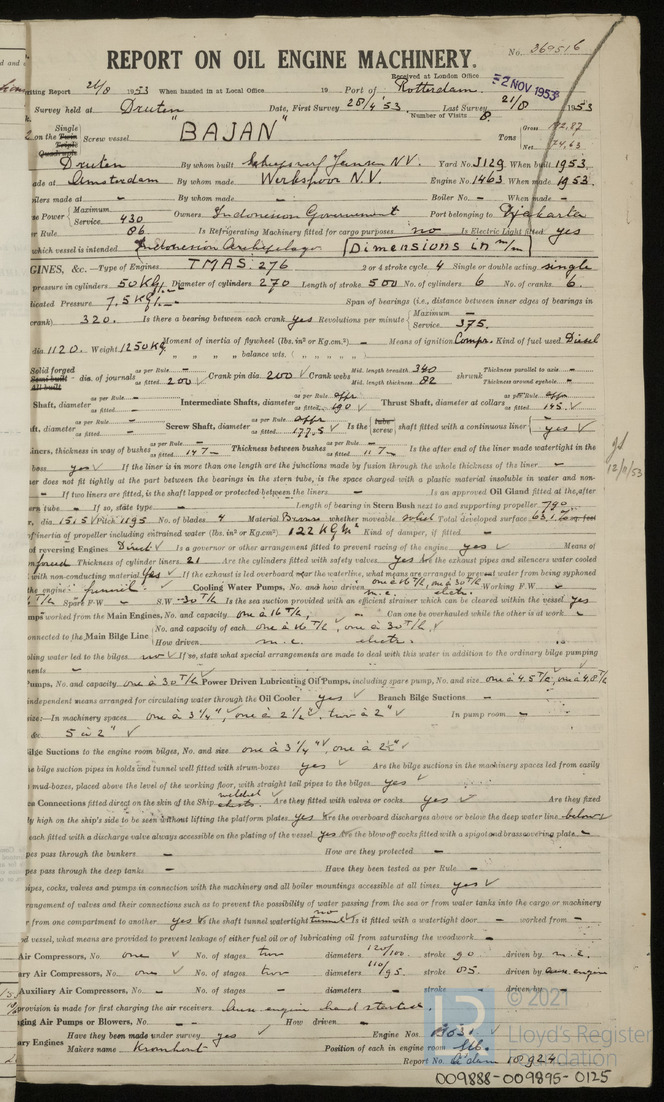 REPORT ON OIL ENGINE MACHINERY.
No. 269516
Received at London Office
2 NOV 1953
writing Report 24/8 1953 When handed in at Local Office 19 Port of Rotterdam.
Survey held at Druten Date, First Survey 28/4 '53 Last Survey 21/8 1953
Number of Visits 8
on the Single Twin Triple Quadruple Screw vessel "BAJAN" Tons Gross 192,87 Net 74,63
Druten By whom built Scheepswerf Jansen N.V. Yard No. 3129 When built 1953.
made at Amsterdam By whom made Werkspoor N.V. Engine No. 1463 When made 1953.
Boilers made at - By whom made - Boiler No. - When made -
Power Maximum Service 430 Owners Indonesian Government Port belonging to Djakarta
Rule 86. Is Refrigerating Machinery fitted for cargo purposes no Is Electric Light fitted yes
which vessel is intended Indonesian Archipelago Dimensions in m/m
GINES, &c.—Type of Engines TMAS. 276 2 or 4 stroke cycle 4 Single or double acting single
pressure in cylinders 50 Kg/ Diameter of cylinders 270 Length of stroke 500 No. of cylinders 6 No. of cranks 6.
Indicated Pressure. 7.5 Kg/ Span of bearings (i.e., distance between inner edges of bearings in
crank) 320. Is there a bearing between each crank yes Revolutions per minute Maximum - Service 375.
dia 1120. Weight 1250 Kg. Moment of inertia of flywheel (lbs. in² or Kg.cm².) - Means of ignition Compr. Kind of fuel used Diesel
" " " balance wts. ( " " " " )
Solid forged Semi built All built dia. of journals as per Rule - as fitted 200 Crank pin dia. 200 Crank webs Mid. length breadth 340 Mid. length thickness 82 shrunk Thickness parallel to axis - Thickness around eyehole -
Shaft, diameter as per Rule - as fitted Intermediate Shafts, diameter as per Rule appr as fitted 190 Thrust Shaft, diameter at collars as per Rule appr as fitted 145
Shaft, diameter as per Rule as fitted Screw Shaft, diameter as per Rule appr as fitted 177.5 Is the tube screw shaft fitted with a continuous liner yes
liners, thickness in way of bushes as per Rule as fitted 14.7 Thickness between bushes as per Rule as fitted 11.7 Is the after end of the liner made watertight in the
boss yes If the liner is in more than one length are the junctions made by fusion through the whole thickness of the liner -
er does not fit tightly at the part between the bearings in the stern tube, is the space charged with a plastic material insoluble in water and non-
- If two liners are fitted, is the shaft lapped or protected between the liners - Is an approved Oil Gland fitted at the after
ern tube - If so, state type - Length of bearing in Stern Bush next to and supporting propeller 790
dia. 1515 Pitch 1195 No. of blades 4 Material Bronze whether moveable solid Total developed surface
of inertia of propeller including entrained water (lbs. in² or Kg.cm².) 122 kg m² Kind of damper, if fitted -
of reversing Engines Direct Is a governor or other arrangement fitted to prevent racing of the engine yes Means of
forced Thickness of cylinder liners 21 Are the cylinders fitted with safety valves yes Are the exhaust pipes and silencers water cooled
with non-conducting material yes If the exhaust is led overboard near the waterline, what means are arranged to prevent water from being syphoned
the engine funnel Cooling Water Pumps, No. and how driven one à 16 T/h, one à 30 T/h Working F.W.
m.e. electr.
Spare F.W - S.W - 30 T/h Is the sea suction provided with an efficient strainer which can be cleared within the vessel yes
mps worked from the Main Engines, No. and capacity one à 16 T/h Can one be overhauled while the other is at work -
connected to the Main Bilge Line No. and capacity of each one à 16 T/h, one à 30 T/h
How driven m.e. electr.
oling water led to the bilges no If so, state what special arrangements are made to deal with this water in addition to the ordinary bilge pumping
ments -
Pumps, No. and capacity one à 30 T/h Power Driven Lubricating Oil Pumps, including spare pump, No. and size one à 4.5 T/h, one à 4.8 T/h
independent means arranged for circulating water through the Oil Cooler yes Branch Bilge Suctions -
size:—In machinery spaces one à 3 1/4", one à 2 1/2", two à 2" In pump room -
&c. 5 à 2"
Bilge Suctions to the engine room bilges, No. and size one à 3 1/4", one à 2 1/2"
he bilge suction pipes in holds and tunnel well fitted with strum-boxes yes Are the bilge suctions in the machinery spaces led from easily
mud-boxes, placed above the level of the working floor, with straight tail pipes to the bilges yes
Connections fitted direct on the skin of the Ship welded chests. Are they fitted with valves or cocks yes Are they fixed
ly high on the ship's side to be seen without lifting the platform plates yes Are the overboard discharges above or below the deep water line below
each fitted with a discharge valve always accessible on the plating of the vessel. yes Are the blow off cocks fitted with a spigot and brass covering plate -
pes pass through the bunkers - How are they protected -
pes pass through the deep tanks - Have they been tested as per Rule -
pipes, cocks, valves and pumps in connection with the machinery and all boiler mountings accessible at all times yes
rrangement of valves and their connections such as to prevent the possibility of water passing from the sea or from water tanks into the cargo or machinery
r from one compartment to another yes Is the shaft tunnel watertight no tunnel Is it fitted with a watertight door - worked from -
d vessel, what means are provided to prevent leakage of either fuel oil or of lubricating oil from saturating the woodwork -
Air Compressors, No. one No. of stages two diameters 120/100. stroke 90 driven by m.e.
ary Air Compressors, No. one No. of stages two diameters 110/95. stroke driven by aux. engine
Auxiliary Air Compressors, No. - No. of stages - diameters - stroke - driven by -
provision is made for first charging the air receivers Aux engine hand started.
ging Air Pumps or Blowers, No. - How driven -
ary Engines Have they been made under survey yes Engine Nos.
Makers name Kromhout Position of each in engine room
Report No. A'dam 18924
12/11/53
© 2021
Lloyd's Register
Foundation
009888-009895-0125